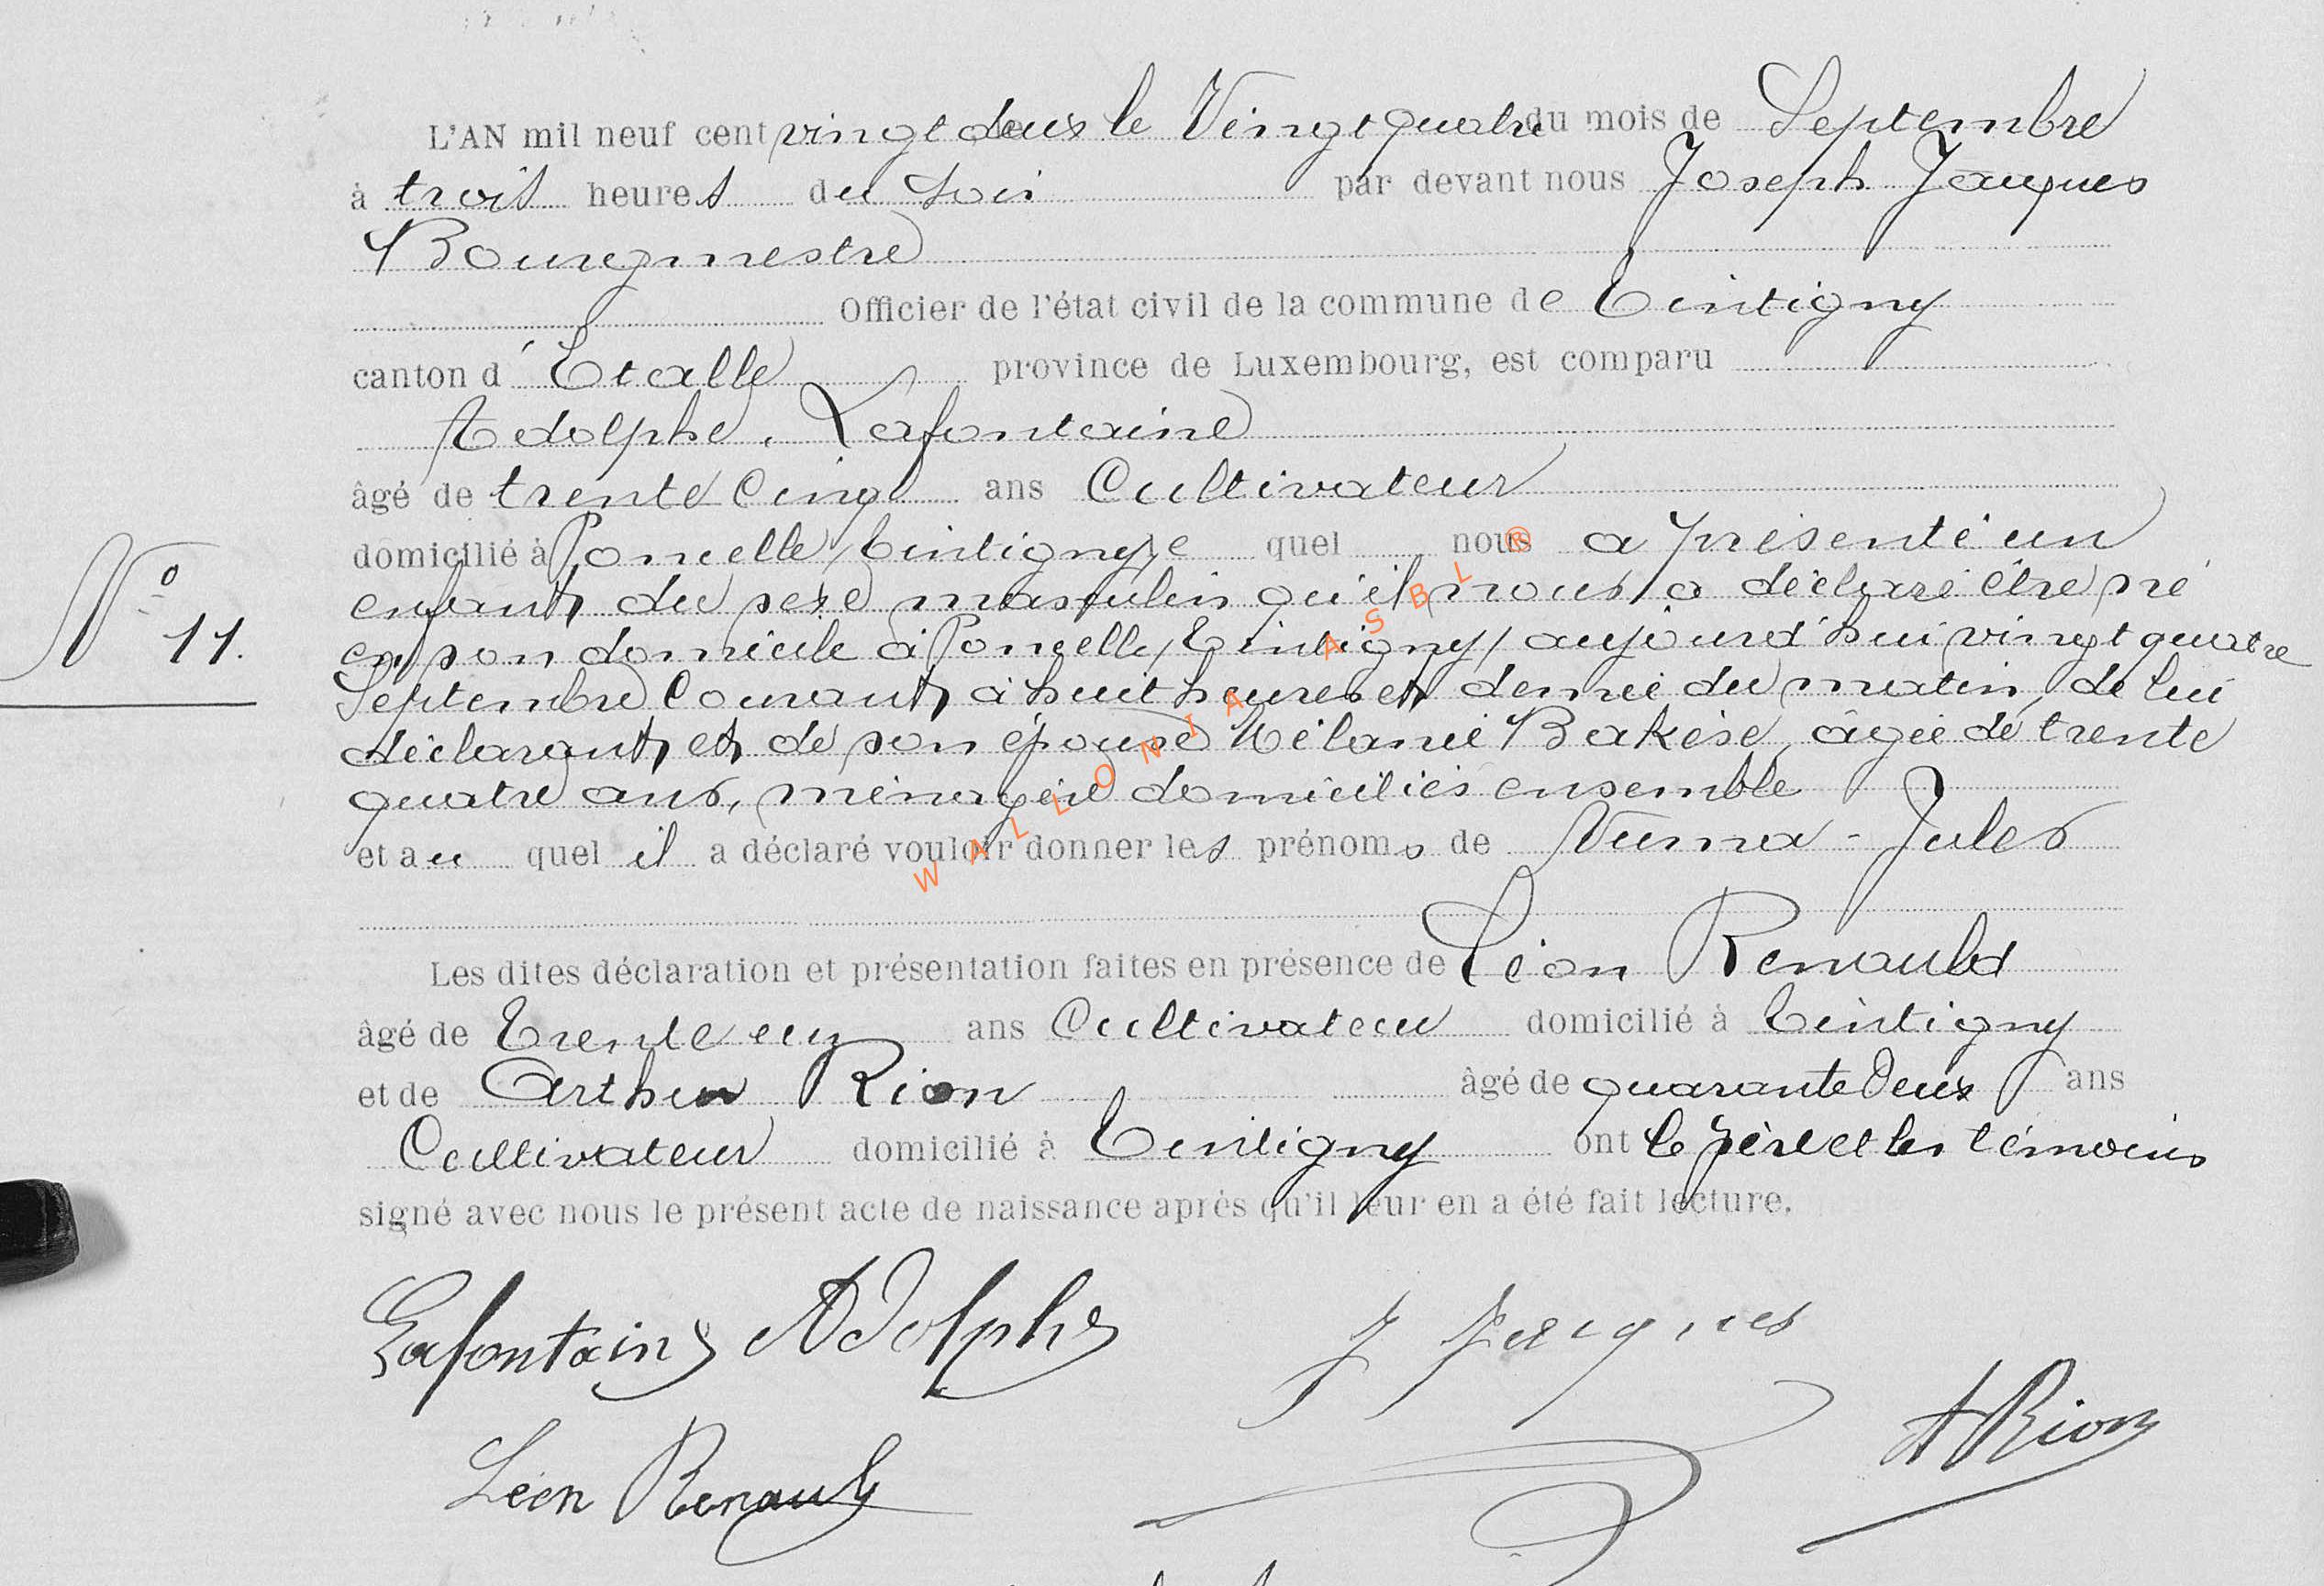 L'AN mil neuf cent vingt deux le Vingt quatre du mois de Septembre
à trois heures du soir par devant nous Joseph Jacques
Bourgmestre
Officier de l'état civil de la commune de Tintigny
canton d'Etalle province de Luxembourg, est comparu
Adolphe Lafontaine
âgé de trente Cinq ans Cultivateur
domicilié à Poncelle, Tintigny, le quel nous a présenté un
enfant du sexe masculin qu'il nous a déclaré être né
en son domicile à Poncelle, Tintigny, aujourd'hui vingt quatre
Septembre Courant, à huit heures et demie du matin, de lui
déclarant, et de son épouse Mélanie Bakèse, âgée de trente
quatre ans, ménagère domiciliés ensemble
et au quel il a déclaré vouloir donner les prénoms de Numa - Jules
Les dites déclaration et présentation faites en présence de Léon Renauld
âgé de Trente un ans Cultivateur domicilié à Tintigny
et de Arthur Rion âgé de quarante Deux ans
Cultivateur domicilié à Tintigny ont le père et les témoins
signé avec nous le présent acte de naissance après qu'il leur en a été fait lecture.
N° 11.
Lafontaine Adolphe
J Jacques
A Rion
Léon Renauld
WALLONIA ASBL ®